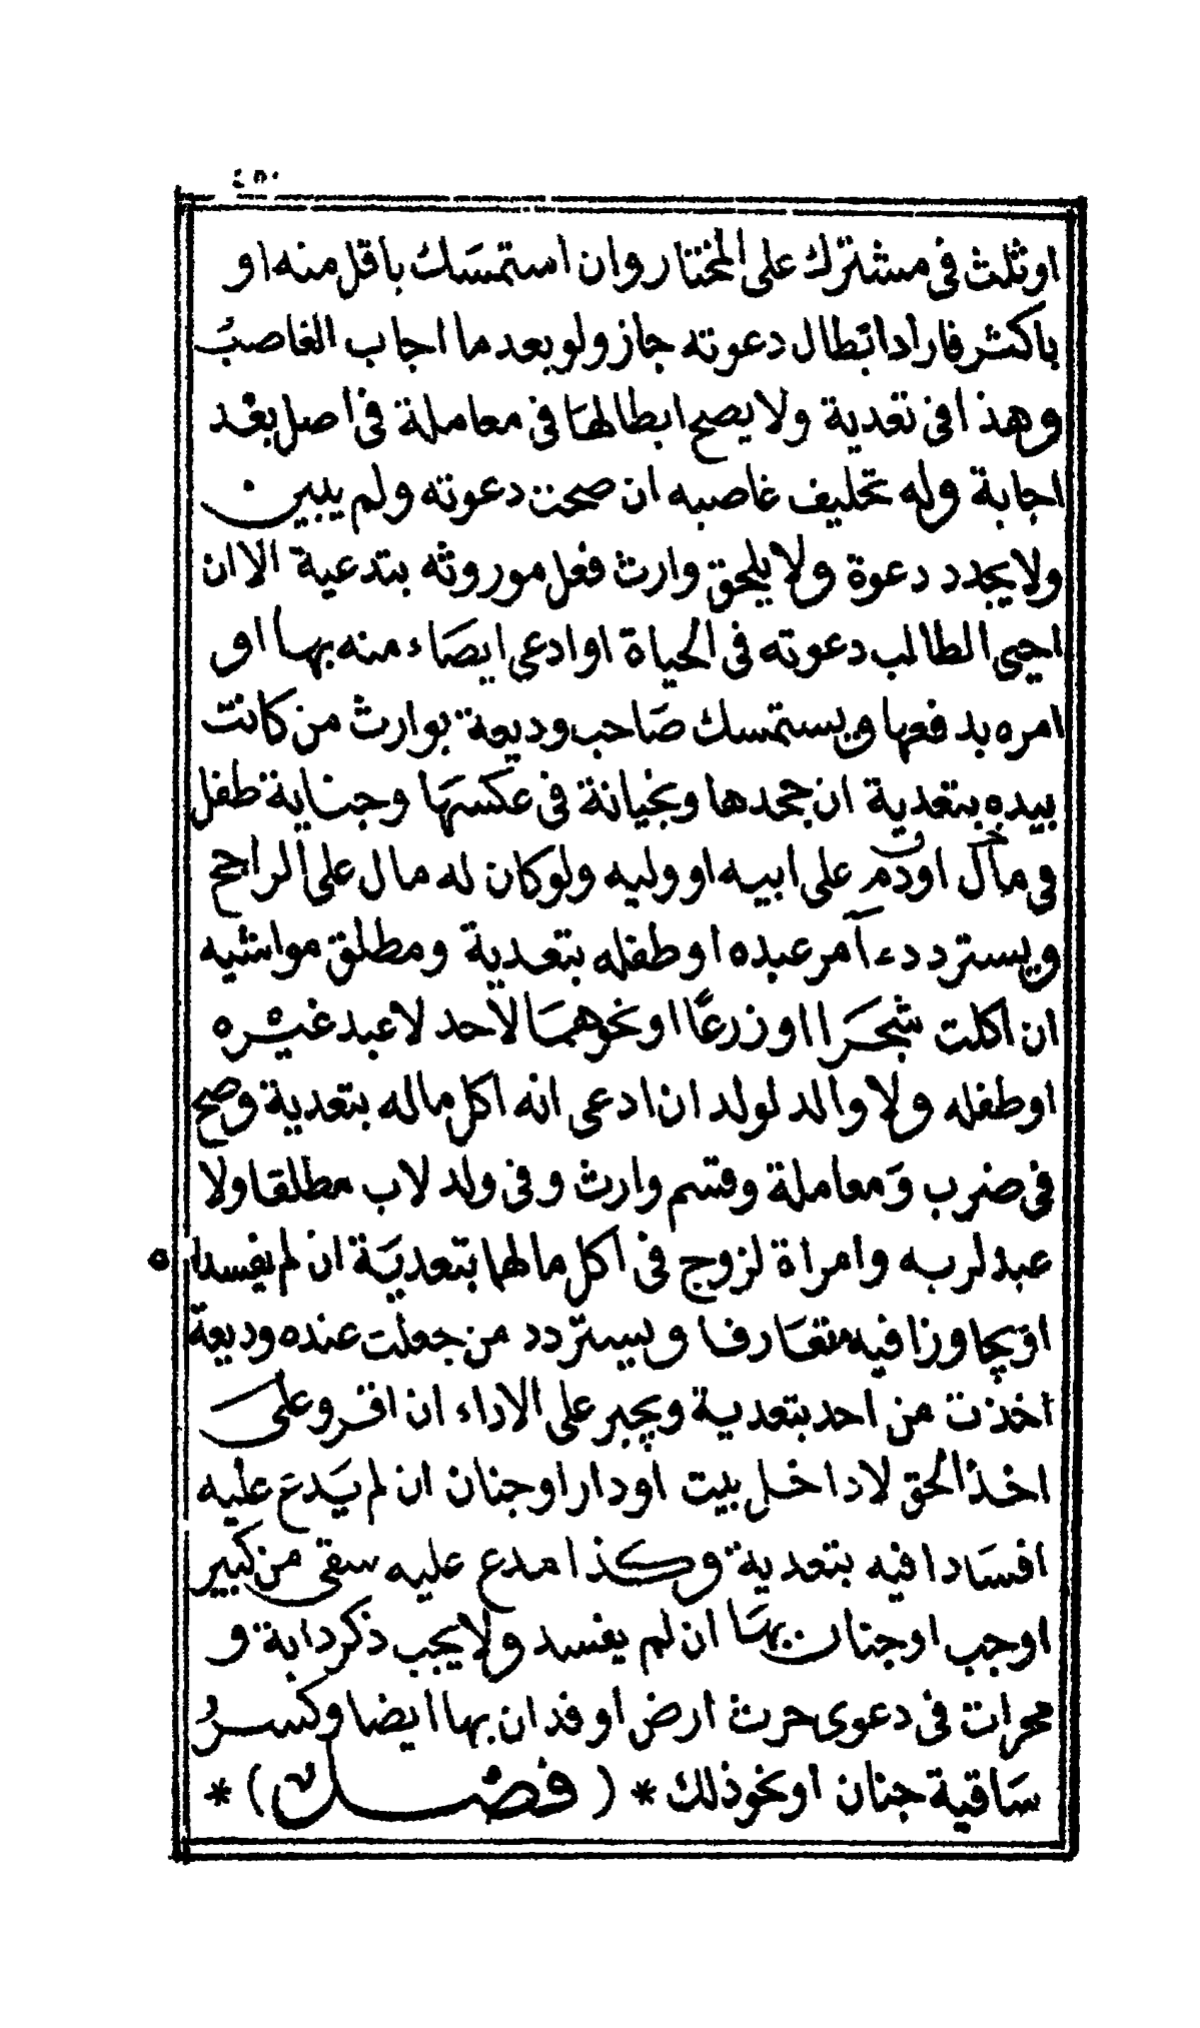 ٤٥٠
اوثلث فى مشترك على المختار وان استمسك باقل منه او
باكثر فاراد ابطال دعوته جاز ولو بعد ما اجاب الغاصب
وهذا فى تعدية ولا يصح ابطالها فى معاملة فى اصل بعد
اجابة وله تحليف غاصبه ان صحت دعوته ولم يبين
ولا يجدد دعوة ولا يلحق وارث فعل موروثه بتدعية الا ان
احيى الطالب دعوته فى الحياة او ادعى ايصاء منه بها او
امره بدفعها ويستمسك صاحب وديعة بوارث من كانت
بيده بتعدية ان جحدها وبخيانة فى عكسها وجناية طفل
فى مال او دم على ابيه او وليه ولو كان له مال على الراجح
ويستردد ء آمر عبده او طفله بتعدية ومطلق مواشيه
ان اكلت شجرا او زرعًا او نحوهما لاحد لا عبد غيره
او طفله ولا والد لولد ان ادعى انه اكل ماله بتعدية وصح
فى ضرب ومعاملة وقسم وارث وفى ولد لاب مطلقا ولا
عبد لربه وامراة لزوج فى اكل مالها بتعدية ان لم يفسدا
او يجاوزا فيه متعارفا ويستردد من جعلت عنده وديعة
اخذت من احد بتعدية ويجبر على الاداء ان اقر وعلى
اخذ الحق لا داخل بيت او دار او جنان ان لم يدع عليه
افسادا فيه بتعدية وكذا مدع عليه سقى من كبير
او جب او جنان بها ان لم يفسد ولا يجب ذكر دابة و
محراث فى دعوى حرث ارض او فدان بها ايضا وكسرُ
ساقية جنان او نحو ذلك * ( فصل ) *